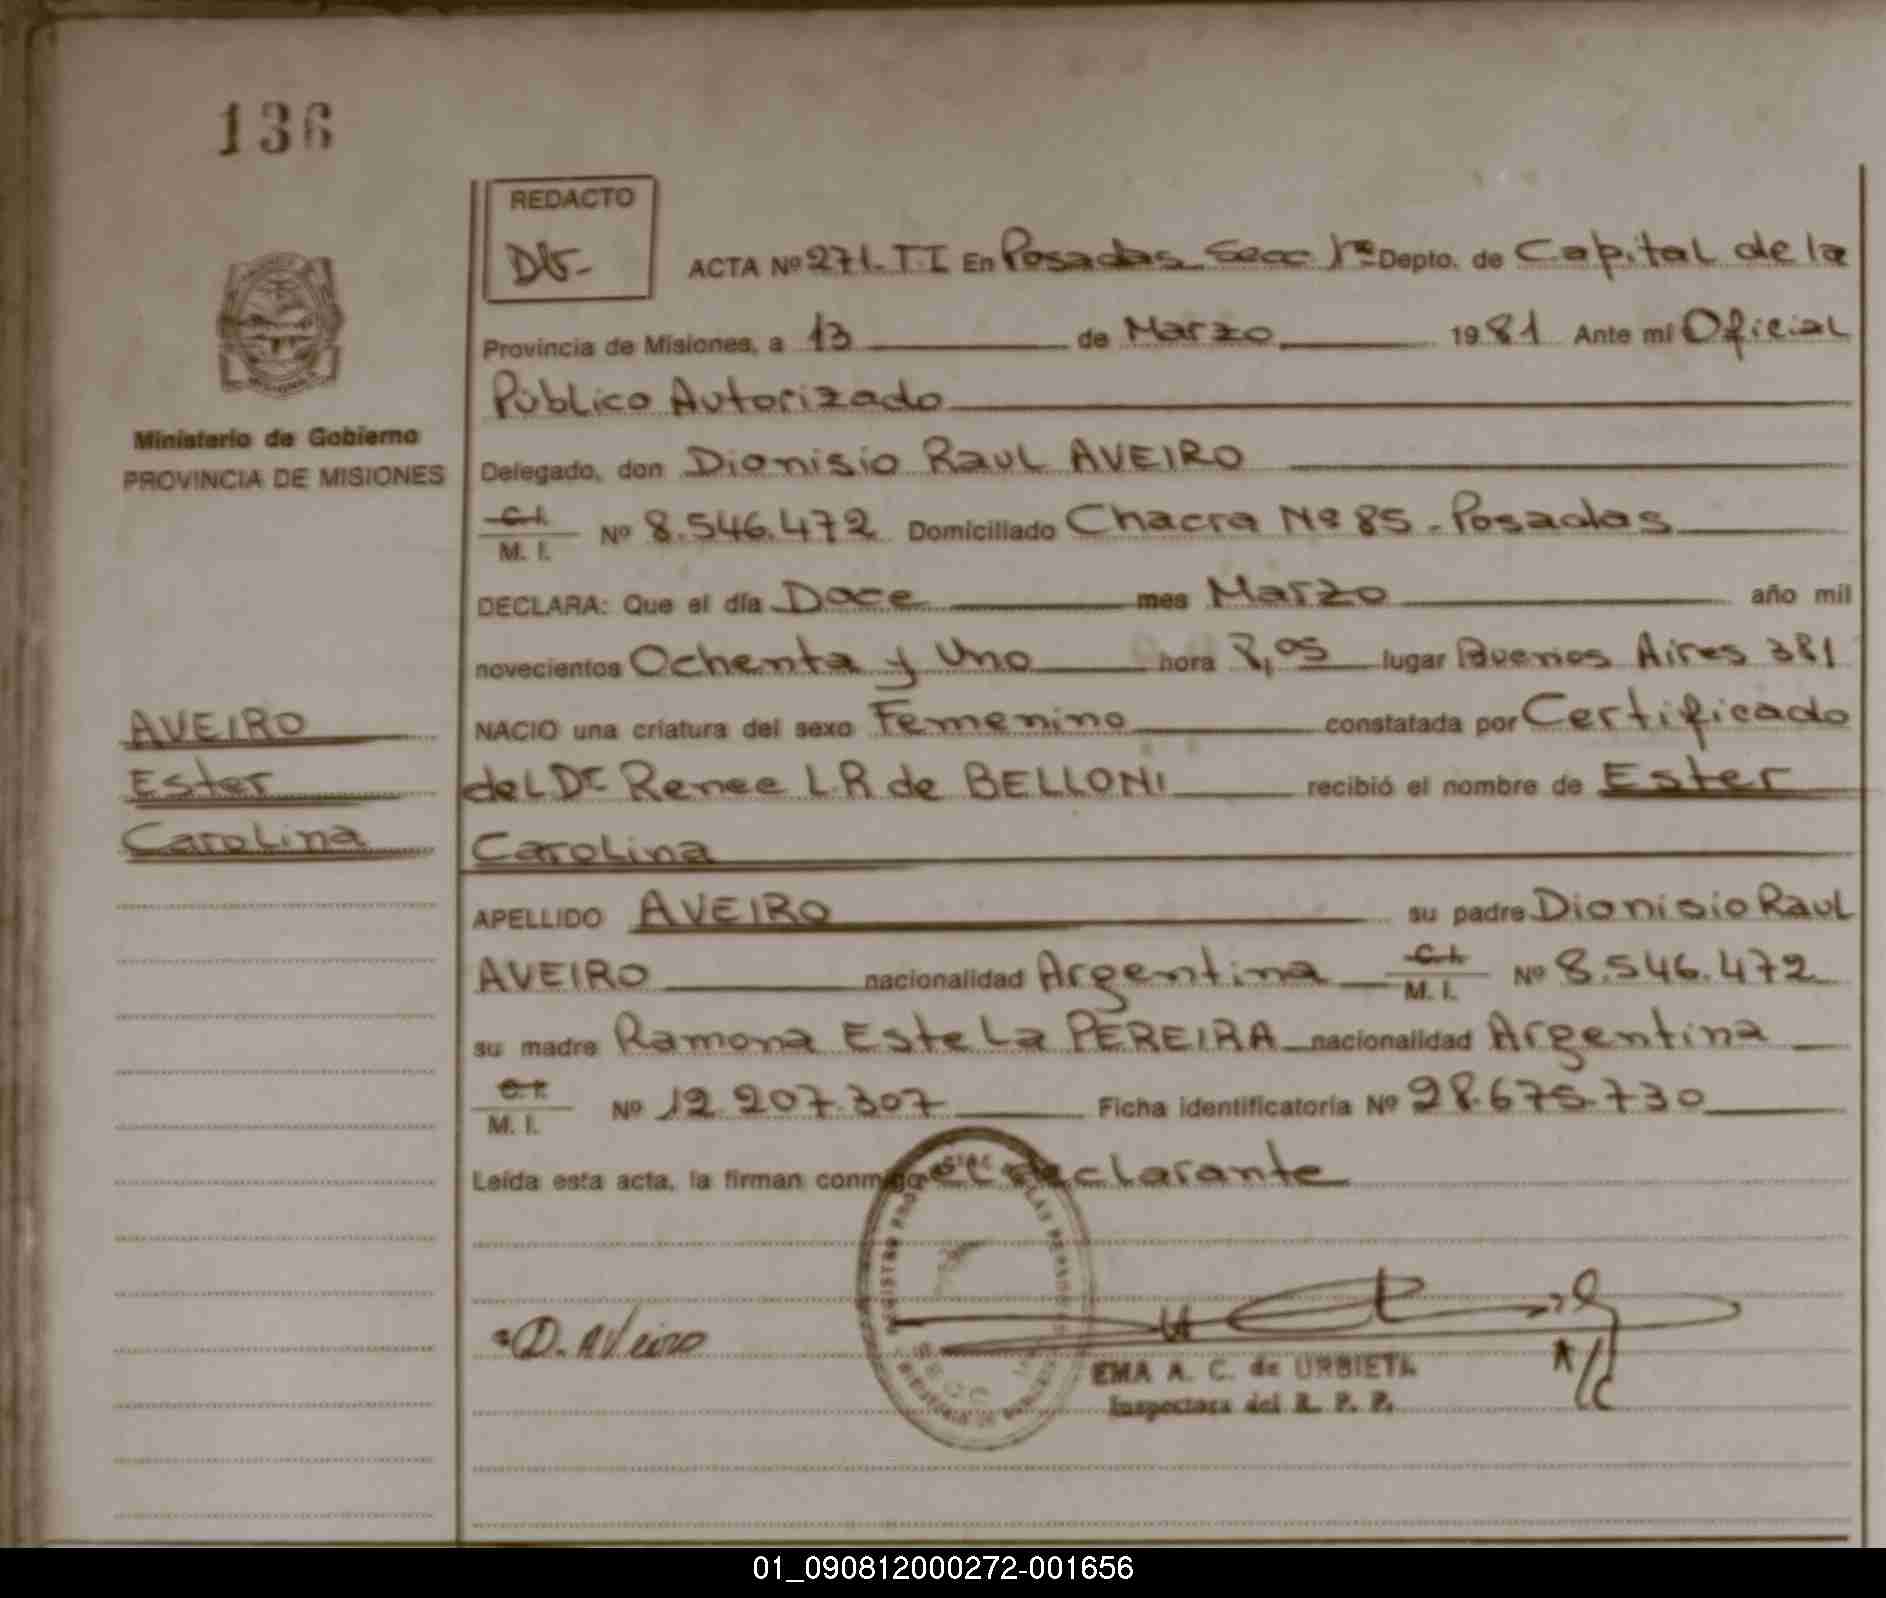 136
REDACTO
ACTA Nº 271. T. I En Posadas Secc 1ª Depto. de Capital de la
Provincia de Misiones, a 13 de Marzo 1981 Ante mí Oficial
Público Autorizado
Ministerio de Gobierno
PROVINCIA DE MISIONES
Delegado, don Dionisio Raul AVEIRO
C.I.
M. I. Nº 8.546.472 Domiciliado Chacra Nº 85 - Posadas
DECLARA: Que el día Doce mes Marzo año mil
novecientos Ochenta y Uno hora 8,05 lugar Buenos Aires 381
AVEIRO
Ester
Carolina
NACIO una criatura del sexo Femenino constatada por Certificado
del Dr Renee L.R de BELLONI recibió el nombre de Ester
Carolina
APELLIDO AVEIRO su padre Dionisio Raul
AVEIRO nacionalidad Argentina C.I. M. I. Nº 8.546.472
su madre Ramona Estela PEREIRA nacionalidad Argentina
C.I.
M. I. Nº 12.207.307 Ficha identificatoria Nº 28.675.730
Leída esta acta, la firman conmigo el declarante
D. Aveiro
EMA A. C. de URBIETA
Inspectora del R. P. P.
01_090812000272-001656